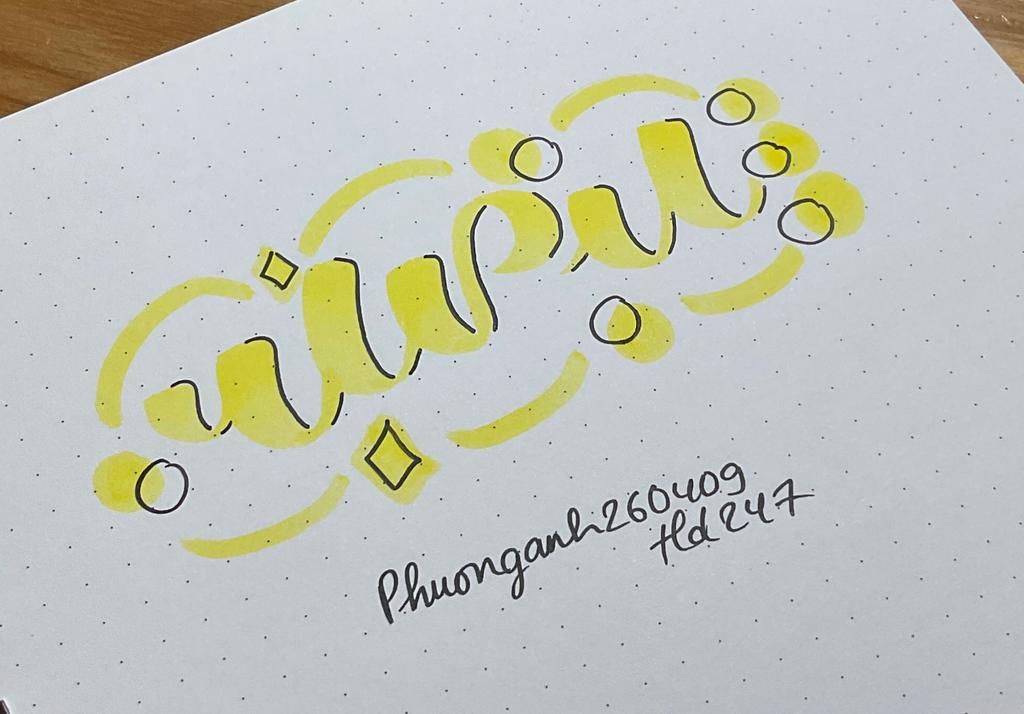 Phuonganh260409
Hd247